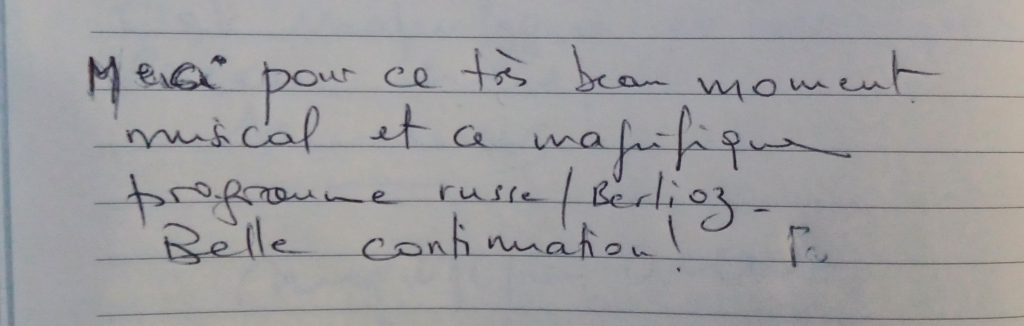 Merci pour ce très beau moment
musical et ce magnifique
programme russe / Berlioz -
Belle continuation !